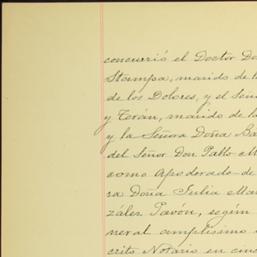 concurrió el Doctor Do
Stampa, marido de l
de los Dolores, y el Señ
y Terán, marido de la
y la Señora Doña Ba
del Señor Don Pablo M
como Apoderado de
ra Doña Julia Mar
zález Pavón, según
neral amplísimo
crito Notario en cin